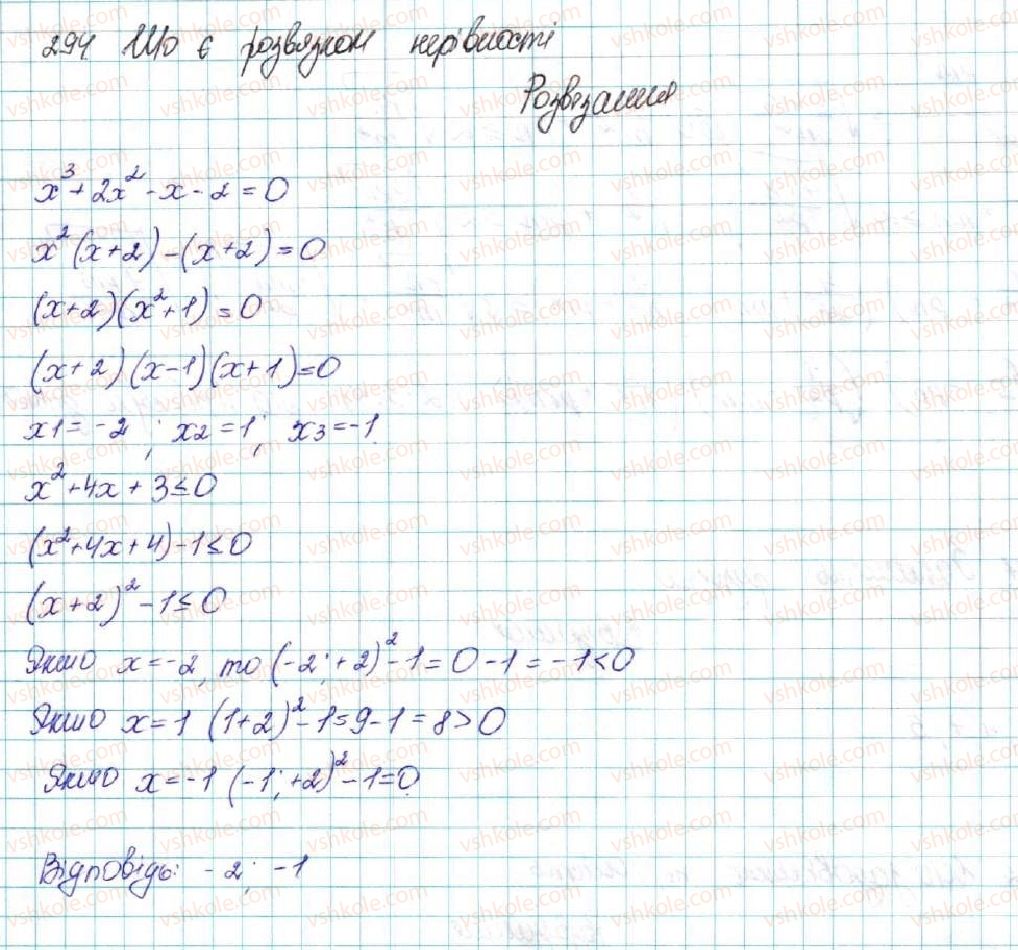 294. Що є розвязком нерівності
Розвязання
x³+2x²-x-2=0
x²(x+2)-(x+2)=0
(x+2)(x²+1)=0
(x+2)(x-1)(x+1)=0
x1=-2; x2=1; x3=-1.
x²+4x+3≤0
(x²+4x+4)-1≤0
(x+2)²-1≤0
Якщо x=-2, то (-2;+2)²-1=0-1=-1<0
Якшо x=1 (1+2)²-1=9-1=8>0
Якшо x=-1 (-1;+2)²-1=0.
Відповідь: -2; -1